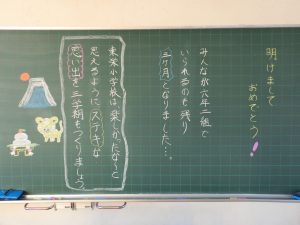 明けまして
おめでとう!
みんなが六年二組で
いられるのも残り
三ヶ月となりました…。
東栄小学校は楽しかったなぁと
思えるように、ステキな
思い出を三学期もつくりましょう。